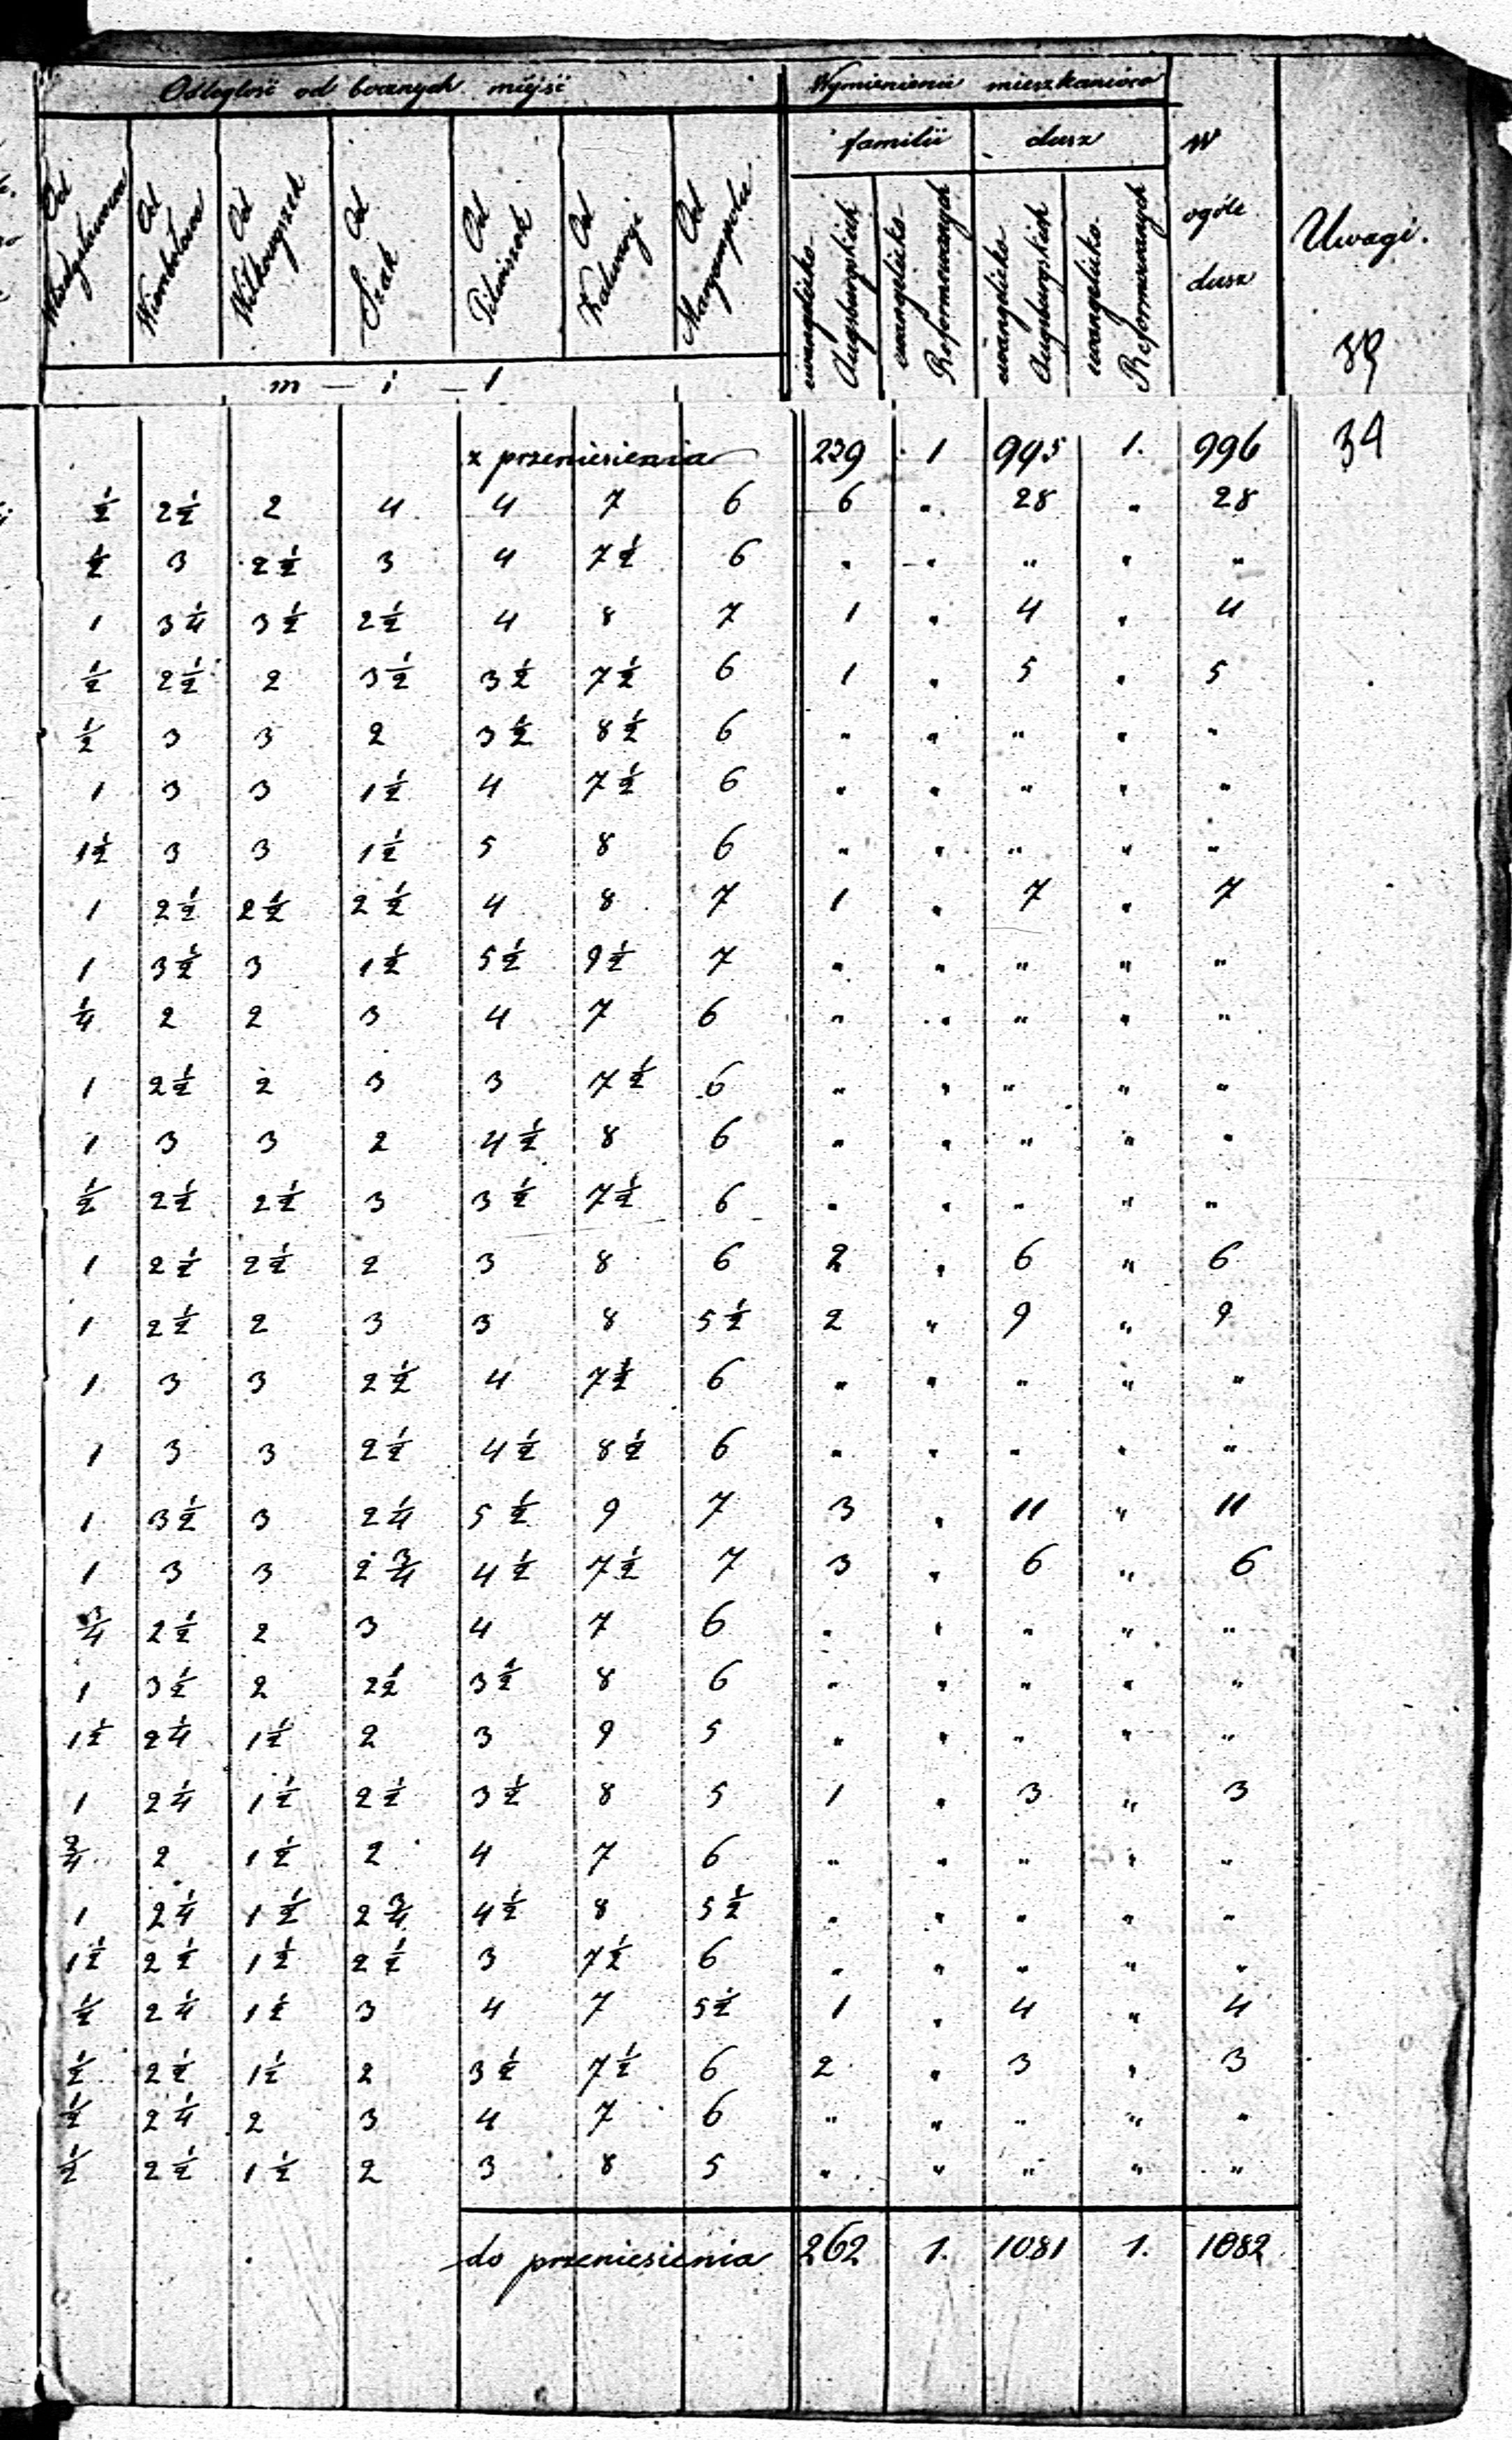 Odległość od bocznych miejsc Wymienienie mieszkańców
familii dusz w ogóle dusz Uwagi.
Od Władysławowa Od Wierzbołowa Od Wiłkowyszek Od Szak Od Pilwiszek Od Kalwaryi Od Maryampola ewangelicko Augsburgskich ewangelicko Reformowanych ewangelicko Augsburgskich ewangelicko Reformowanych
m – i – l
39
z przeniesienia 239 1 995 1. 996 34
½ 2½ 2 4 4 7 6 6 " 28 " 28
½ 3 2½ 3 4 7½ 6 " " " " "
1 3¼ 3½ 2½ 4 8 7 1 " 4 " 4
½ 2½ 2 3½ 3½ 7½ 6 1 " 5 " 5
½ 3 3 2 3½ 8½ 6 " " " " "
1 3 3 1½ 4 7½ 6 " " " " "
1½ 3 3 1½ 5 8 6 " " " " "
1 2½ 2½ 2½ 4 8 7 1 " 7 " 7
1 3½ 3 1½ 5½ 9½ 7 " " " " "
¼ 2 2 3 4 7 6 " " " " "
1 2½ 2 3 3 7½ 6 " " " " "
1 3 3 2 4½ 8 6 " " " " "
½ 2½ 2½ 3 3½ 7½ 6 " " " " "
1 2½ 2½ 2 3 8 6 2 " 6 " 6
1 2½ 2 3 3 8 5½ 2 " 9 " 9
1 3 3 2½ 4 7½ 6 " " " " "
1 3 3 2½ 4½ 8½ 6 " " " " "
1 3½ 3 2¼ 5½ 9 7 3 " 11 " 11
1 3 3 2¾ 4½ 7½ 7 3 " 6 " 6
¾ 2½ 2 3 4 7 6 " " " " "
1 3½ 2 2½ 3½ 8 6 " " " " "
1½ 2¼ 1½ 2 3 9 5 " " " " "
1 2¼ 1½ 2½ 3½ 8 5 1 " 3 " 3
¾ 2 1½ 2 4 7 6 " " " " "
1 2¼ 1½ 2¾ 4½ 8 5½ " " " " "
1½ 2½ 1½ 2½ 3 7½ 6 " " " " "
½ 2¼ 1½ 3 4 7 5½ 1 " 4 " 4
½ 2½ 1½ 2 3½ 7½ 6 2 " 3 " 3
½ 2¼ 2 3 4 7 6 " " " " "
½ 2½ 1½ 2 3 8 5 " " " " "
do przeniesienia 262 1. 1081 1. 1082